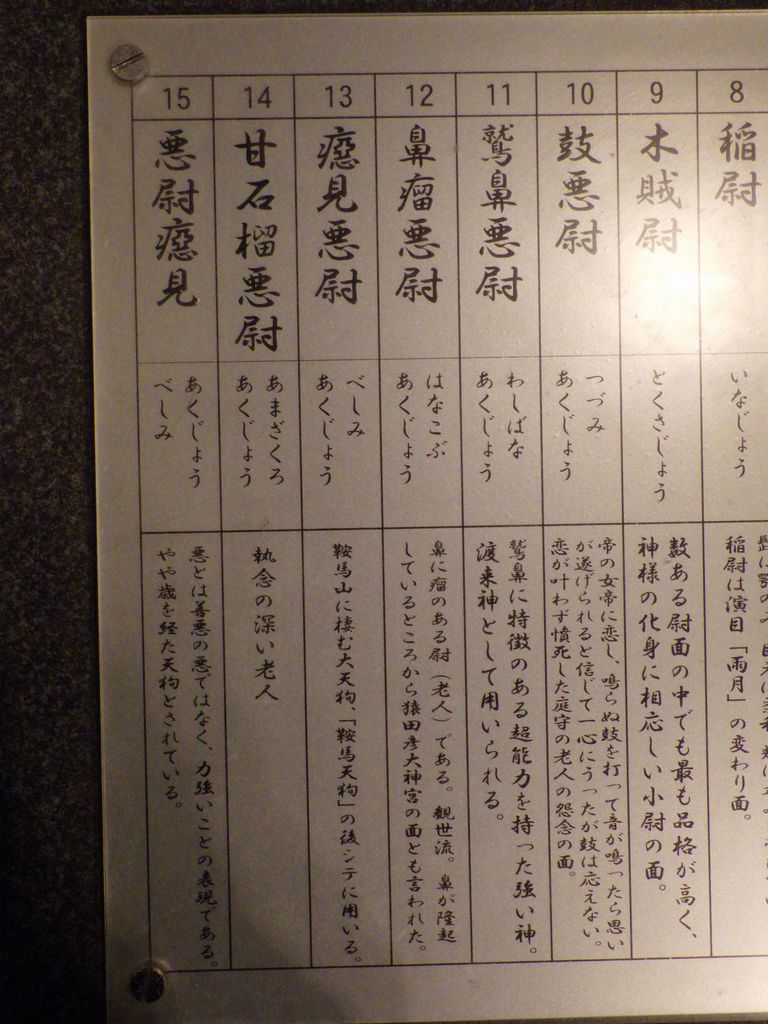 8
稲尉
いなじょう
稲尉は演目「雨月」の変わり面。
9
木賊尉
とくさじょう
数ある尉面の中でも最も品格が高く、
神様の化身に相応しい小尉の面。
10
鼓悪尉
つづみ
あくじょう
帝の女帝に恋し、鳴らぬ鼓を打って音が鳴ったら思い
が遂げられると信じて一心にうったが鼓は応えない。
恋が叶わず憤死した庭守の老人の怨念の面。
11
鷲鼻悪尉
わしばな
あくじょう
鷲鼻に特徴のある超能力を持った強い神。
渡来神として用いられる。
12
鼻瘤悪尉
はなこぶ
あくじょう
鼻に瘤のある尉（老人）である。観世流。鼻が隆起
しているところから猿田彦大神宮の面とも言われた。
13
癋見悪尉
べしみ
あくじょう
鞍馬山に棲む大天狗、「鞍馬天狗」の後シテに用いる。
14
甘石榴悪尉
あまざくろ
あくじょう
執念の深い老人
15
悪尉癋見
あくじょう
べしみ
悪とは善悪の悪ではなく、力強いことの表現である。
やや歳を経た天狗とされている。